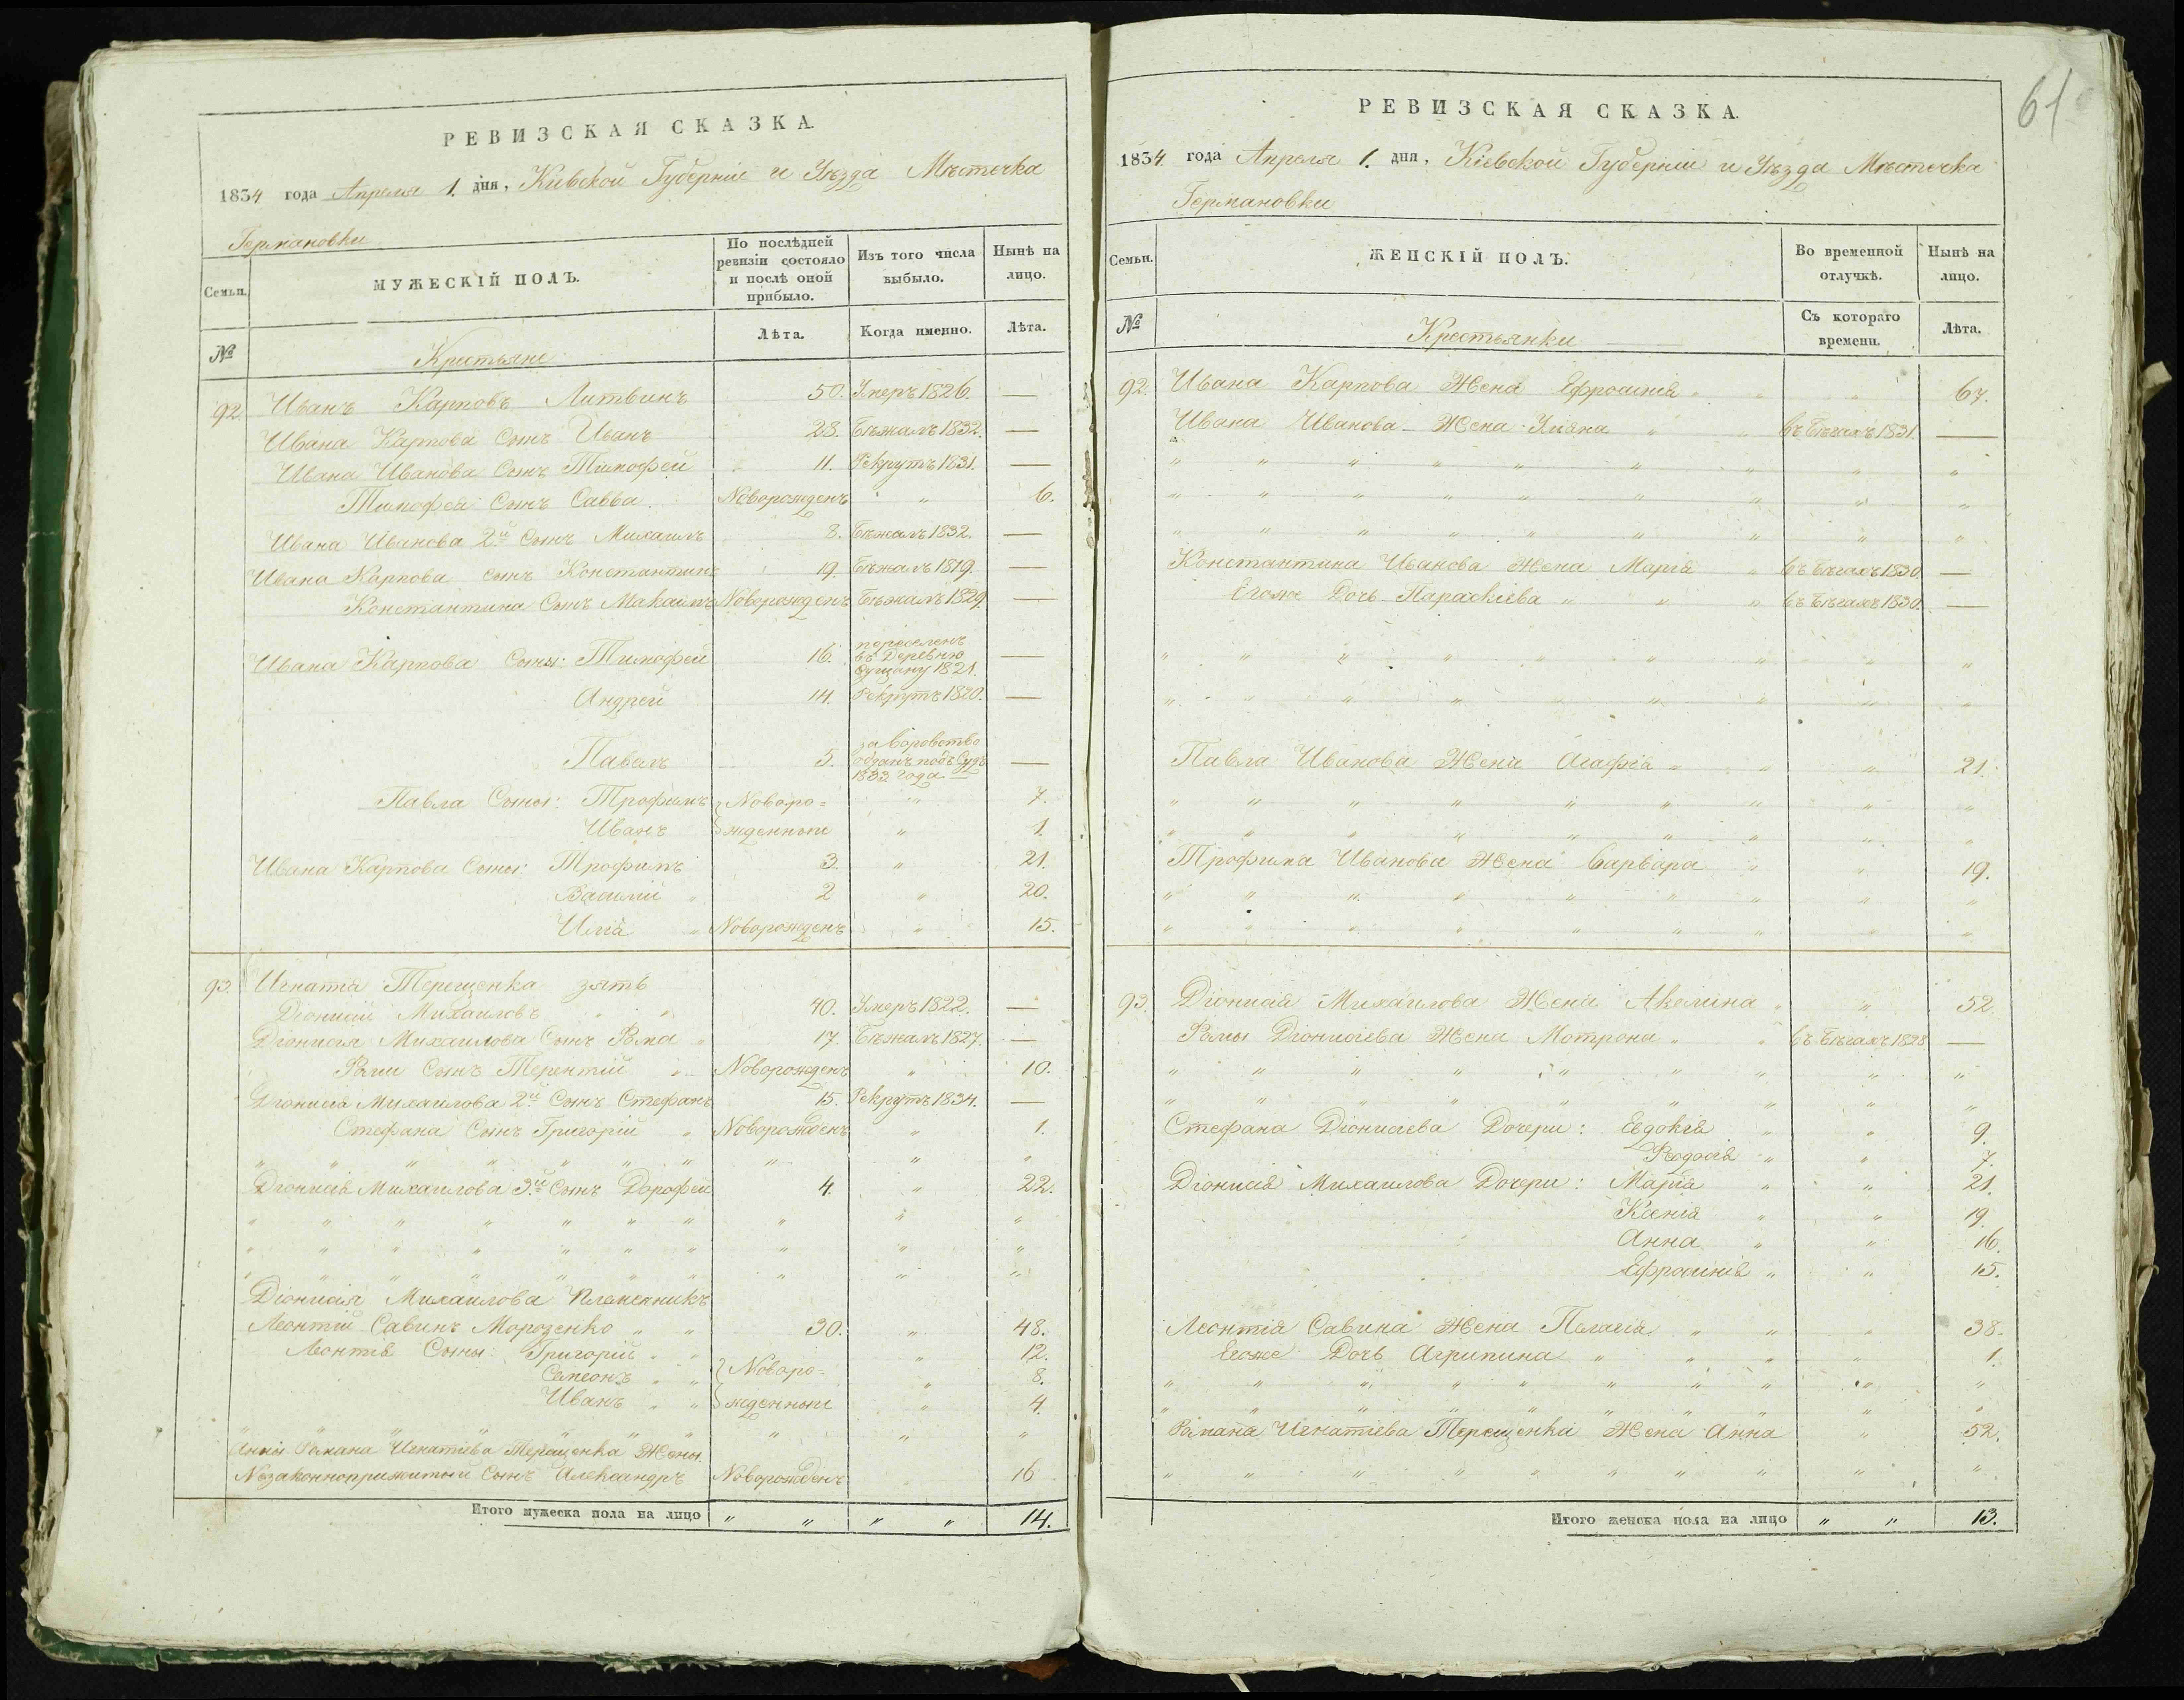 РЕВИЗСКАЯ СКАЗКА.
1834 года Апреля 1. дня, Кіевской Губерніи и Уѣзда Мѣстечка
Германовки
Семьи.
МУЖЕСКІЙ ПОЛЪ.
По послѣдней ревизіи состояло и послѣ оной прибыло.
Изъ того числа выбыло.
Нынѣ на лицо.
№
Крестьяне
Лѣта.
Когда именно.
Лѣта.
92 Иванъ Карповъ Литвинъ 50. Умеръ 1826. —
Ивана Карпова Сынъ Иванъ 28. Бѣжалъ 1832. —
Ивана Иванова Сынъ Тимофей " 11. Рекрутъ 1831. —
Тимофея Сынъ Савва Новорожденъ " 6.
Ивана Иванова 2й Сынъ Михаилъ 8. Бѣжалъ 1832. —
Ивана Карпова сынъ Константинъ 19. Бѣжалъ 1819. —
Константина Сынъ Новорожденъ Бѣжалъ 1829. —
Ивана Карпова Сыны: Тимофей 16. переселенъ въ Деревню 1821. —
Андрей 14. Рекрутъ 1820. —
Павелъ 5. за воровство отданъ подъ Судъ 1832 года —
Павла Сыны: Трофимъ } Новоро= " 7.
Иванъ } жденные " 1.
Ивана Карпова Сыны: Трофимъ 3. " 21.
Василій " 2 " 20.
Илія " Новорожденъ " 15.
93. Игнатія Терещенка зять
Діонисій Михаиловъ " " 40. Умеръ 1822. —
Діонисія Михаилова Сынъ Ѳома " 17. Бѣжалъ 1827. —
Ѳомы Сынъ Терентій " Новорожденъ " 10.
Діонисія Михаилова 2й Сынъ Стефанъ 15. Рекрутъ 1834. —
Стефана Сынъ Григорій " Новорожденъ " 1.
" " " " " " " " " "
Діонисія Михаилова 3й Сынъ Дорофей 4. " 22.
" " " " " " " " " "
" " " " " " " " " "
" " " " " " " " " "
Діонисія Михаилова Племенникъ
Леонтій Савинъ Морозенко " " 30. " 48.
Леонтія Сыны: Григорій " " " 12.
Семеонъ " " } Новоро= " 8.
Иванъ " " } жденные " 4.
" " " " " " " " " "
Анны Романа Игнатіева Терещенка Жены
Незаконноприжитый Сынъ Александръ Новорожденъ 16
Итого мужеска пола на лицо " " " " 14.
61
РЕВИЗСКАЯ СКАЗКА.
1834 года Апреля 1. дня, Кіевской Губерніи и Уѣзда Мѣстечка
Германовки
Семьи.
ЖЕНСКІЙ ПОЛЪ.
Во временной отлучкѣ.
Нынѣ на лицо.
№
Крестьянки
Съ котораго времени.
Лѣта.
92. Ивана Карпова Жена Ефросинія " " " 67.
Ивана Иванова Жена Уліяна " " въ Бѣгахъ 1831. —
" " " " " " " " "
" " " " " " " " "
" " " " " " " " "
Константина Иванова Жена Марія " въ Бѣгахъ 1830. —
Егоже Дочь Параскіева " " " въ Бѣгахъ 1830. —
" " " " " " " " "
" " " " " " " " "
Павла Иванова Жена Агафія " " " 21.
" " " " " " " " "
" " " " " " " " "
Трофима Иванова Жена Варвара " " 19.
" " " " " " " " "
" " " " " " " " "
93. Діонисія Михаилова Жена Акелина " " 52.
Ѳомы Діонисіева Жена Мотрона " " въ Бѣгахъ 1828 —
" " " " " " " " "
" " " " " " " " "
Стефана Діонисіева Дочери: Евдокія " " 9.
Ѳеодосія " " 7.
Діонисія Михаилова Дочери: Марія " " 21.
Ксенія " " 19.
Анна " " 16.
Ефросинія " " 15.
Леонтія Савина Жена Пелагія " " " 38.
Егоже Дочь Агрипина " " " " 1.
" " " " " " " " " "
" " " " " " " " " "
Романа Игнатіева Терещенка Жена Анна " 52.
" " " " " " " " " "
Итого женска пола на лицо " " 13.